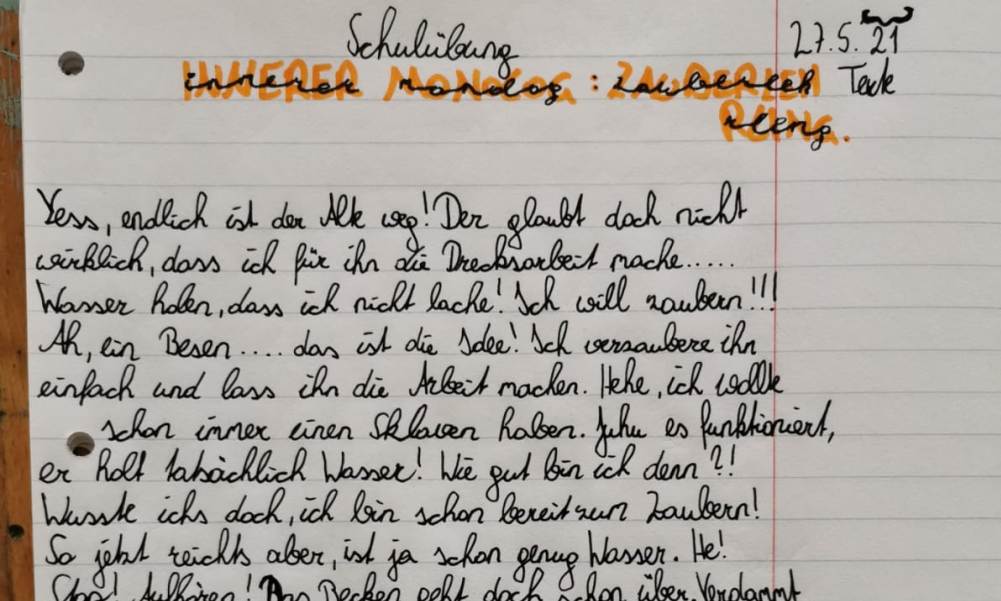 Schulübung 27.5.21
innerer monolog : zauberleh Teck
RLING.
Yess, endlich ist der Alte weg! Der glaubt doch nicht
wirklich, dass ich für ihn die Drecksarbeit mache.....
Wasser holen, dass ich nicht lache! Ich will zaubern!!!
Ah, ein Besen.... das ist die Idee! Ich verzaubere ihn
einfach und lass ihn die Arbeit machen. Hehe, ich wollte
schon immer einen Sklaven haben. Juhu es funktioniert,
er holt tatsächlich Wasser! Wie gut bin ich denn?!
Wusste ichs doch, ich bin schon bereit zum Zaubern!
So jetzt reichts aber, ist ja schon genug Wasser. He!
Stop! Aufhören! Das Becken geht doch schon über. Verdammt